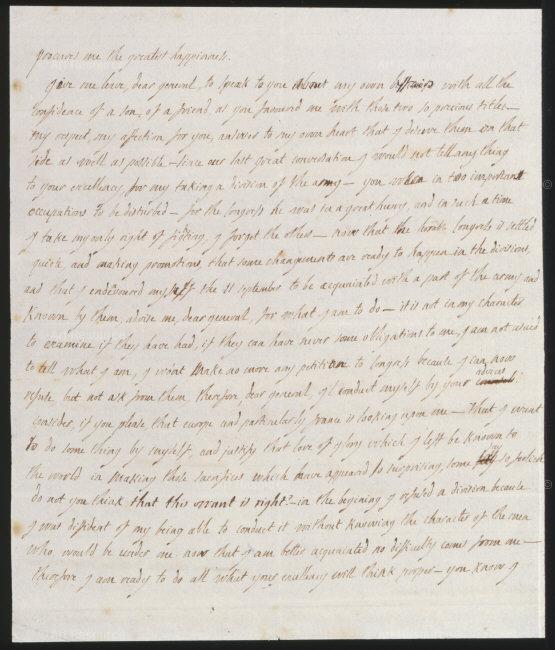 procures me the greatest happiness.
give me leave, dear general, to speak to you about my own business with all the
confidence of a son, of a friend as you favoured me with those two so precious titles—
my respect, my affection for you, answer to my own heart that I deserve them on that
side as well as possible— since our last great conversation I would not tell any thing
to your excellency for my taking a division of the army— you were in too important
occupations to be disturbed— for the Congress he was in a great hurry, and in such a time
I take my only right of fighting, I forget the others— now that the honble Congress is settled
quiete, and making promotions, that some changements are ready to happen in the divisions,
and that I endeavoured myself the 11 september to be acquainted with a part of the army and
known by them, advise me, dear general, for what I am to do— it is not in my character
to examine if they have had, if they can have never some obligations to me, I am not used
to tell what I am, I wo'nt make no more any petition to Congress because I can now
refuse, but not ask from them, therefore, dear general, I'l conduct myself by your advices
consider, if you please, that europe and particularly france is looking upon me— that I want
to do some thing by myself, and justify that love of glory which I left be known to
the world in making those sacrifices which have appeared so surprising, some say so foolish
do not you think that this want is right?— in the begining I refused a division because
I was diffident of my being able to conduct it without knowing the character of the men
who would be under me. now that I am better acquainted no difficulty comes from me—
therefore I am ready to do all what your excellency will think proper— you know I